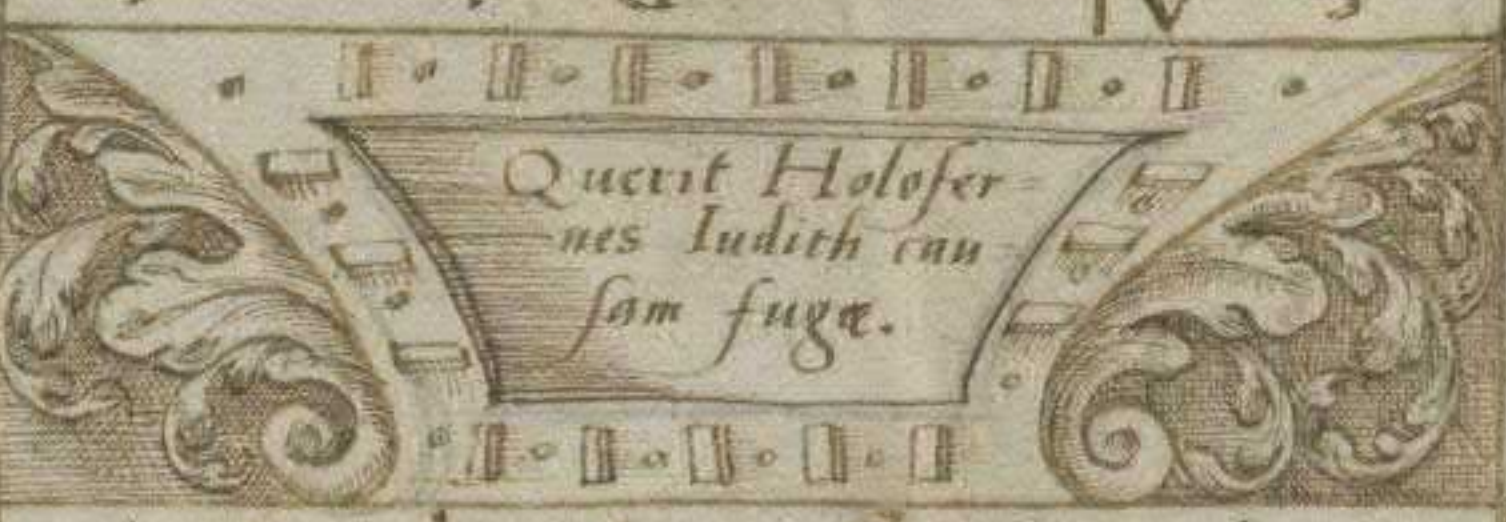 Querit Holofer-
nes Iudith cau-
sam fugæ.